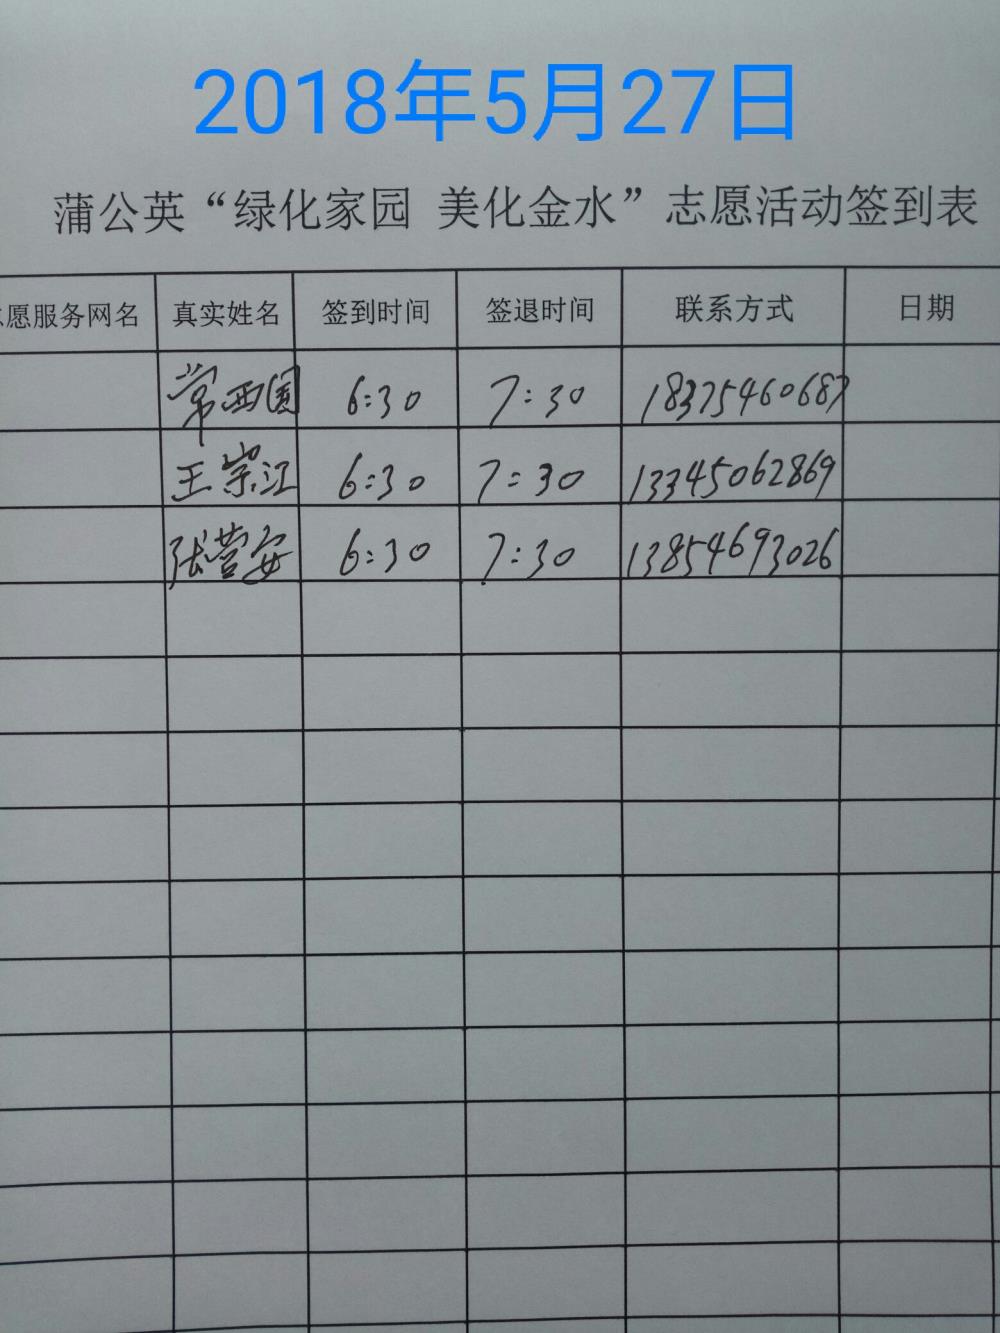 2018年5月27日
蒲公英“绿化家园 美化金水”志愿活动签到表
愿服务网名 真实姓名 签到时间 签退时间 联系方式 日期
常西国 6:30 7:30 18375460687
王崇江 6:30 7:30 13345062869
张营安 6:30 7:30 13854693026